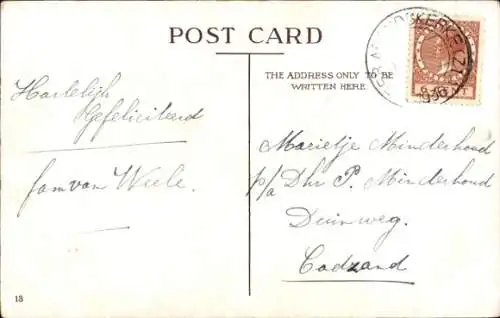 POST CARD
THE ADDRESS ONLY TO BE
WRITTEN HERE
Hartelijk
Gefeliciteerd
fam van Weele.
Marietje Minderhoud
p/a Dhr P. Minderhoud
Duinweg.
Cadzand
18